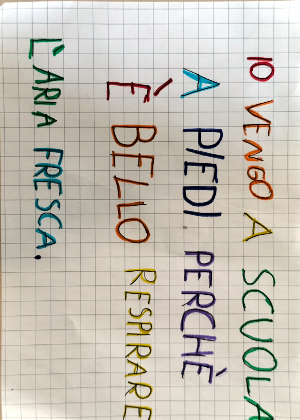 IO VENGO A SCUOLA
A PIEDI PERCHÈ
È BELLO RESPIRARE
L'ARIA FRESCA.